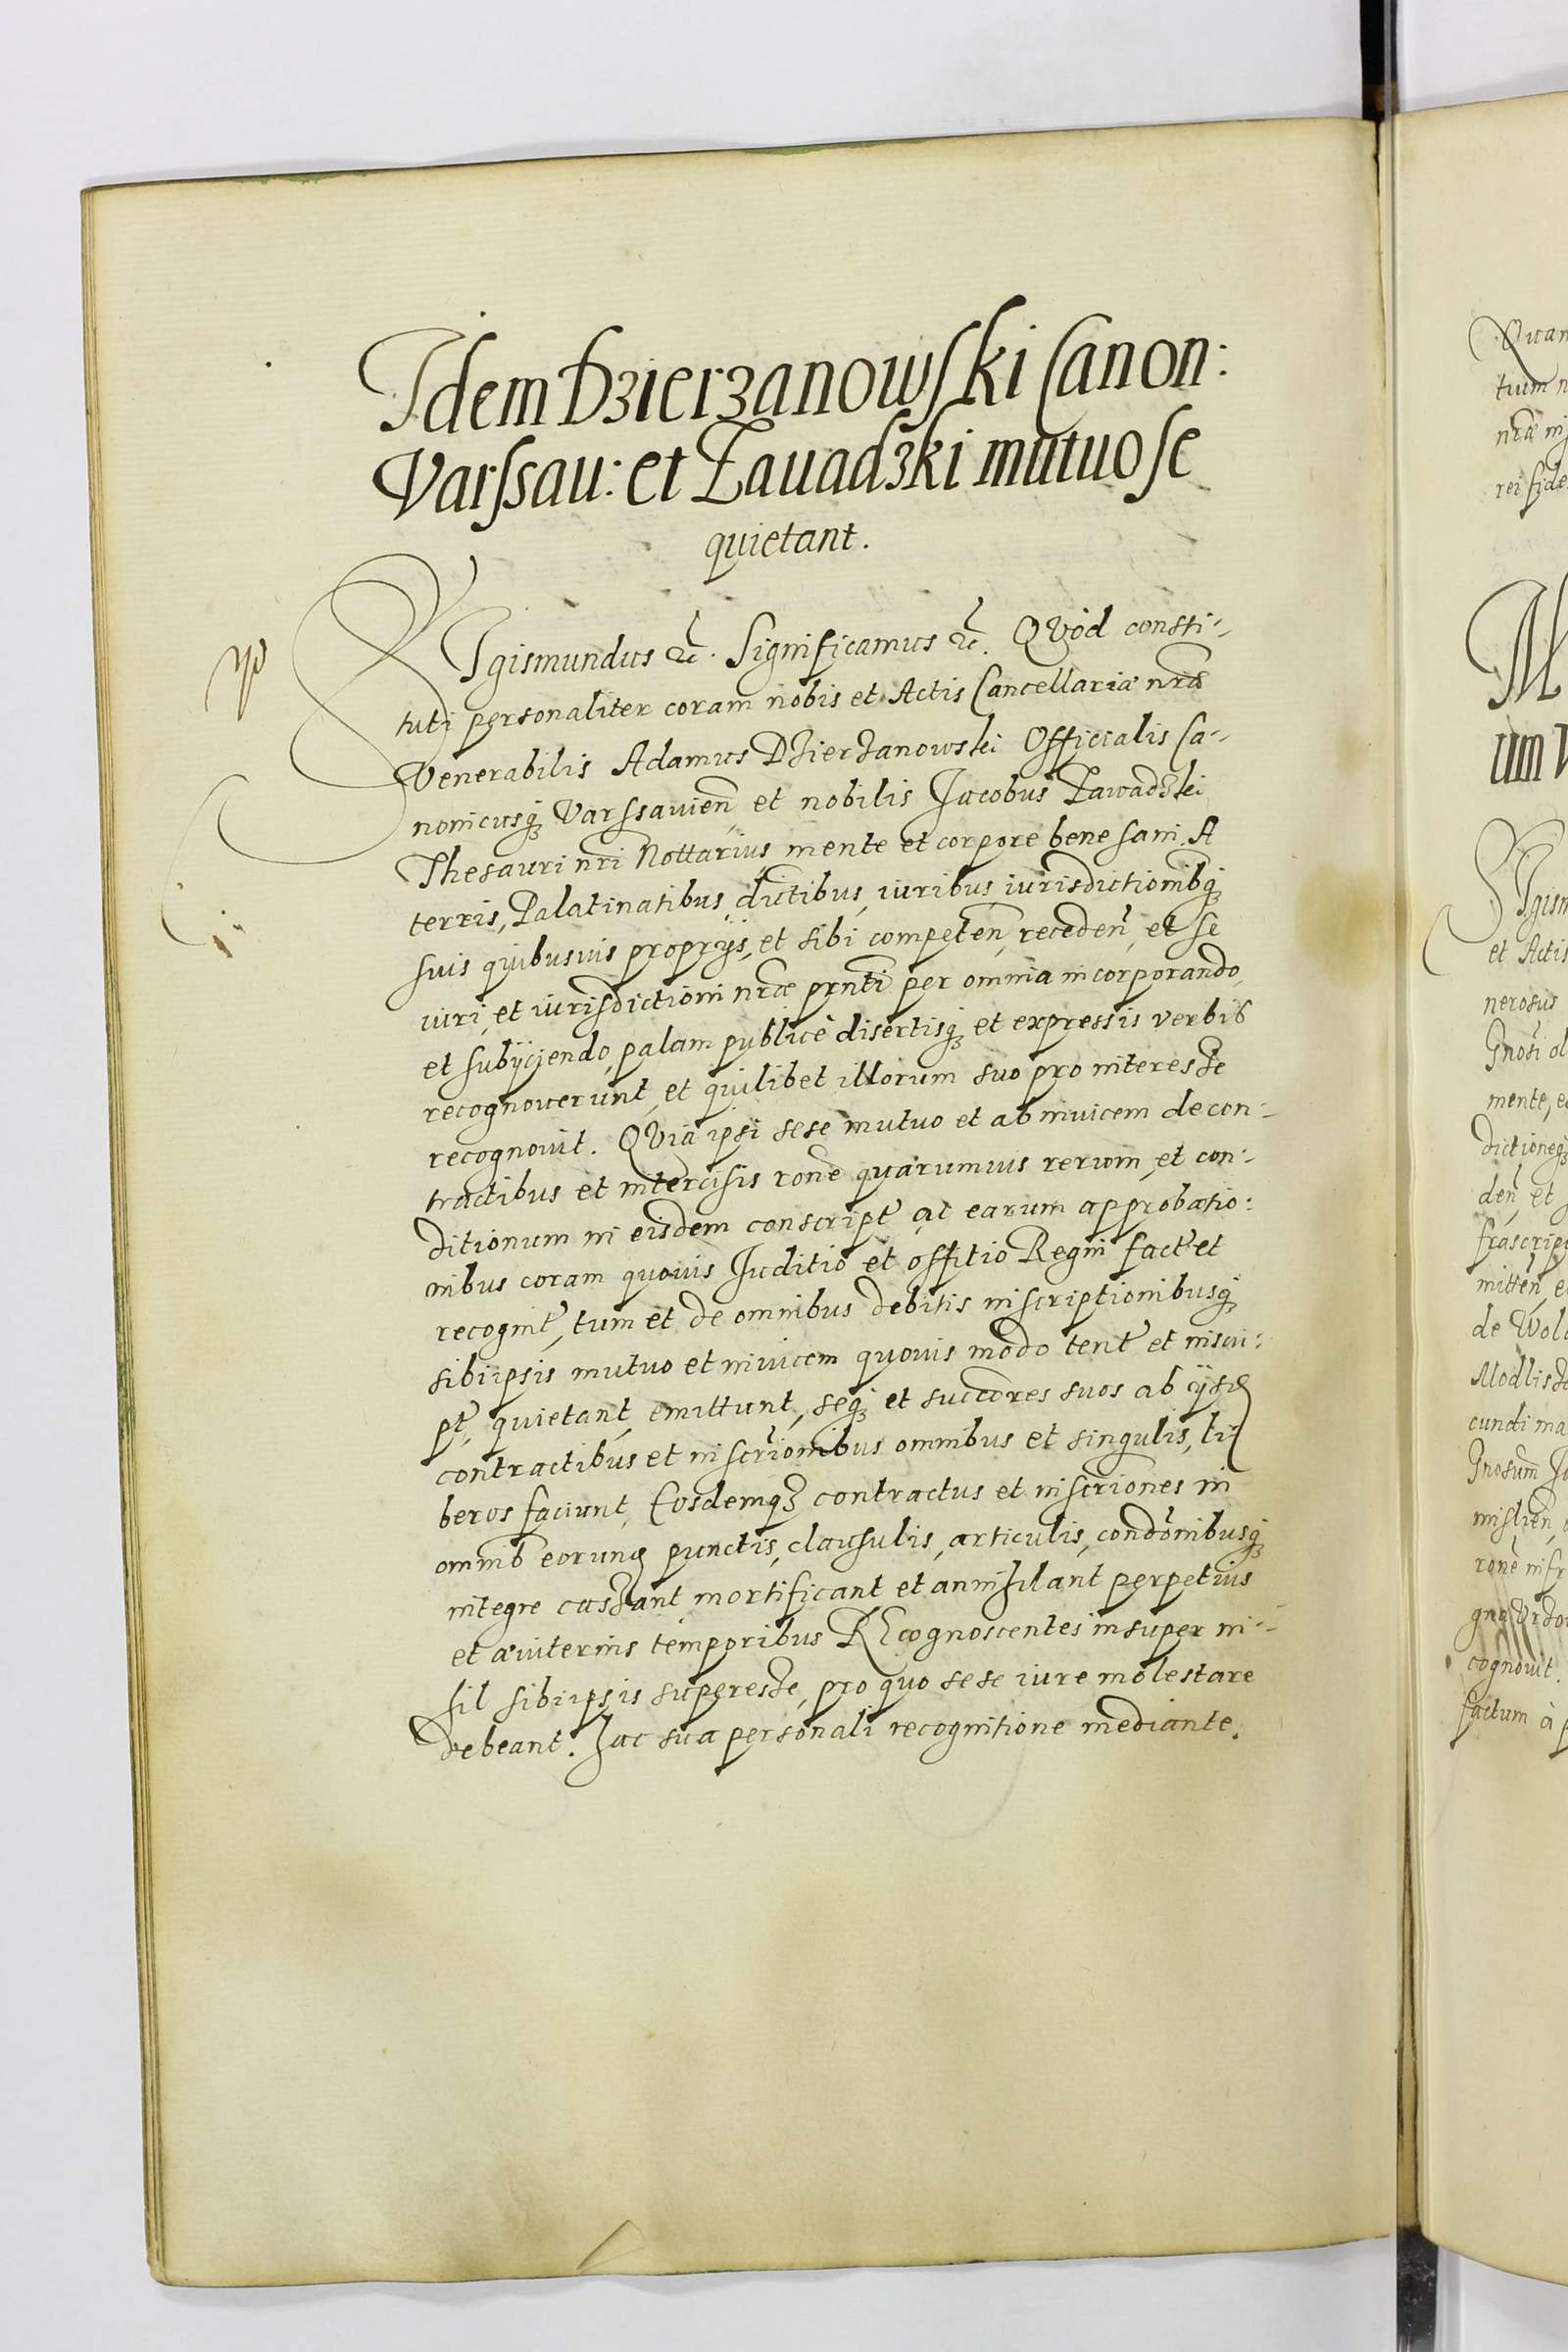 Idem Dzierzanowski Canon:
Varssau: et Zauadzki mutuo se
quietant.
SIgismundus &c. Significamus &c. QVod consti-
tuti personaliter coram nobis et Actis Cancellariæ nræ
Venerabilis Adamus Dzierzanowski Officialis Ca-
nonicusq; Varssauien, et nobilis Jacobus Zawadzki
Thesauri nri Nottarius, mente et corpore bene sani. A
terris, Palatinatibus, dictibus, iuribus, iurisdictionibq;
suis quibusuis proprijs, et sibi competen, receden, et se
iuri, et iurisdictioni nræ prnti per omnia incorporando,
et subijciendo, palam publicè disertisq; et expressis verbis
recognouerunt, et quilibet illorum suo pro interesse
recognouit. QVia ipsi sese mutuo et ab inuicem de con-
tractibus et intercisis rone quarumuis rerum, et con-
ditionum in eisdem conscript at earum approbatio:
nibus coram quouis Juditio et offitio Regni fact et
recognit, tum et de omnibus debitis inscriptionibusq;
sibiipsis mutuo et inuicem quouis modo tent et inscri:
pt, quietant, emittunt, seq; et succores suos ab ijsd
contractibus et inscrionibus omnibus et singulis, li
beros faciunt, Eosdemq; contractus et inscriones in
omnib eorunq punctis, clausulis, articulis, condonibusq;
integre cassant mortificant et annihilant perpetuis
et æuiternis temporibus REcognoscentes insuper ni-
hil sibiipsis superesse, pro quo sese iure molestare
debeant. Hac sua personali recognitione mediante.
Quan
tum n
nræ
rei fide
M
um V
SIgism
et Actis
nerosus
Gnosi ol
mente, e
dictioneq;
den, et
frascrip
mitten, e
de Wol
Modlisze
cundi ma
Gnosum Jo
rone infr
cognouit.
factum à p